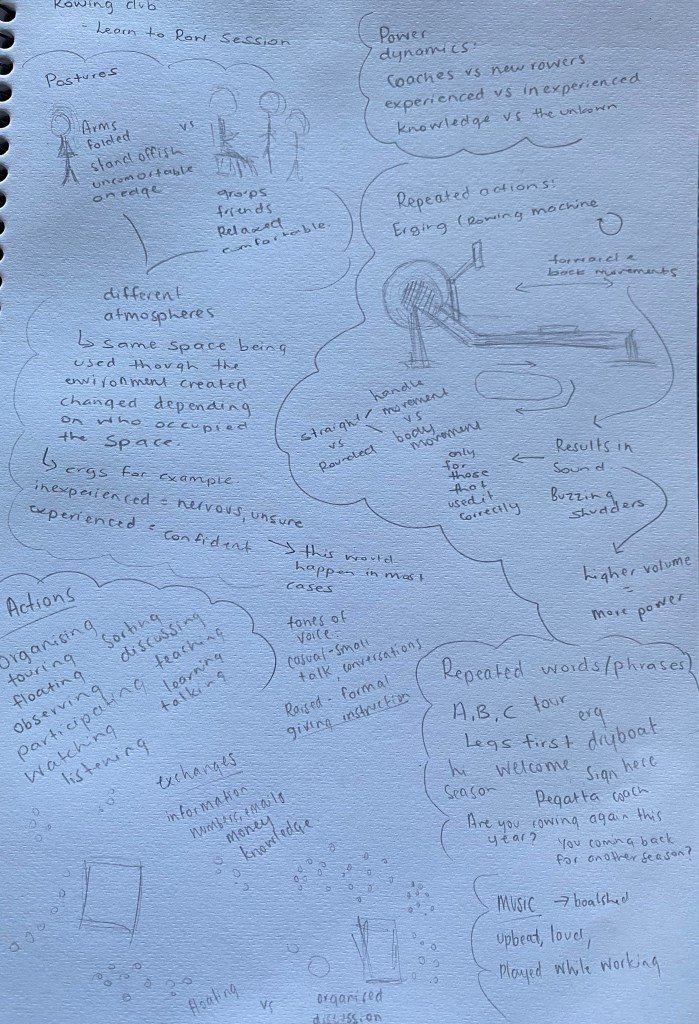 Rowing club
- Learn to Row session
Postures
Arms
folded
standoffish
uncomortable
on edge
vs
groups
friends
Relaxed
comfortable.
different
atmospheres
↳ same space being
used though the
environment created
changed depending
on who occupied
the space.
↳ ergs for example.
inexperienced = nervous, unsure
experienced = confident
→ this would
happen in most
cases
Power
dynamics:
Coaches vs new rowers
experienced vs inexperienced
knowledge vs the unkown
Repeated actions:
Erging (Rowing machine
forward &
back movements
straight
vs
Rounded
handle
movement
vs
body
movement
Results in
sound
Buzzing
shudders
only
for
those
that
used it
correctly
higher volume
=
more power
Actions
Organising
touring
floating
observing
participating
watching
listening
Sorting
discussing
teaching
learning
talking
tones of
voice:
casual - small
talk, conversations
Raised - formal
giving instruction
exchanges
information
numbers, emails
money
knowledge
Repeated words/phrases
A, B, C tour erg
Legs first dryboat
hi welcome sign here
Season Regatta coach
Are you rowing again this
year? You coming back
for another season?
Music → boatshed
upbeat, loud,
Played while working
floating vs organised
discussion